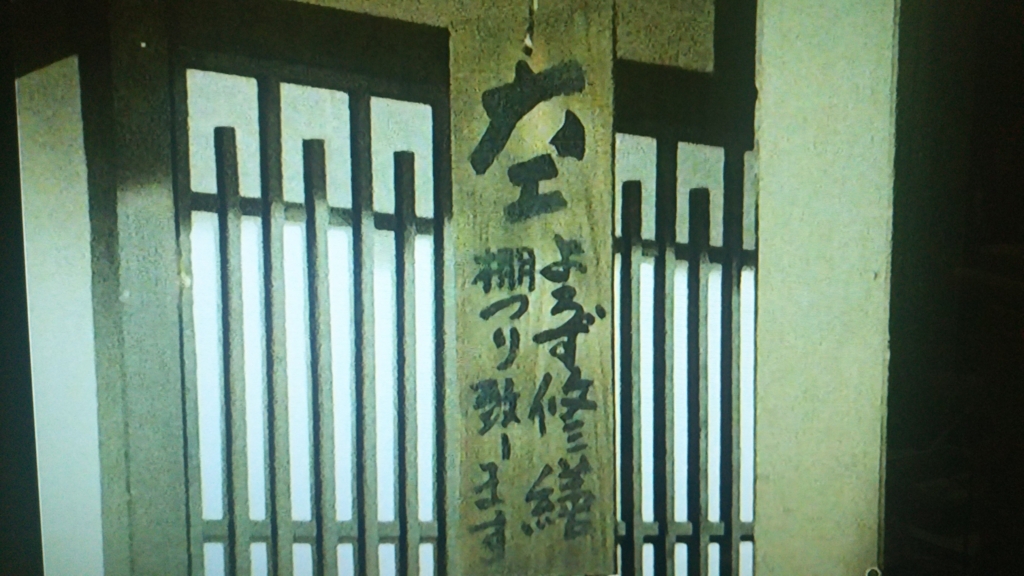 大工
よろず修繕
棚つり致します